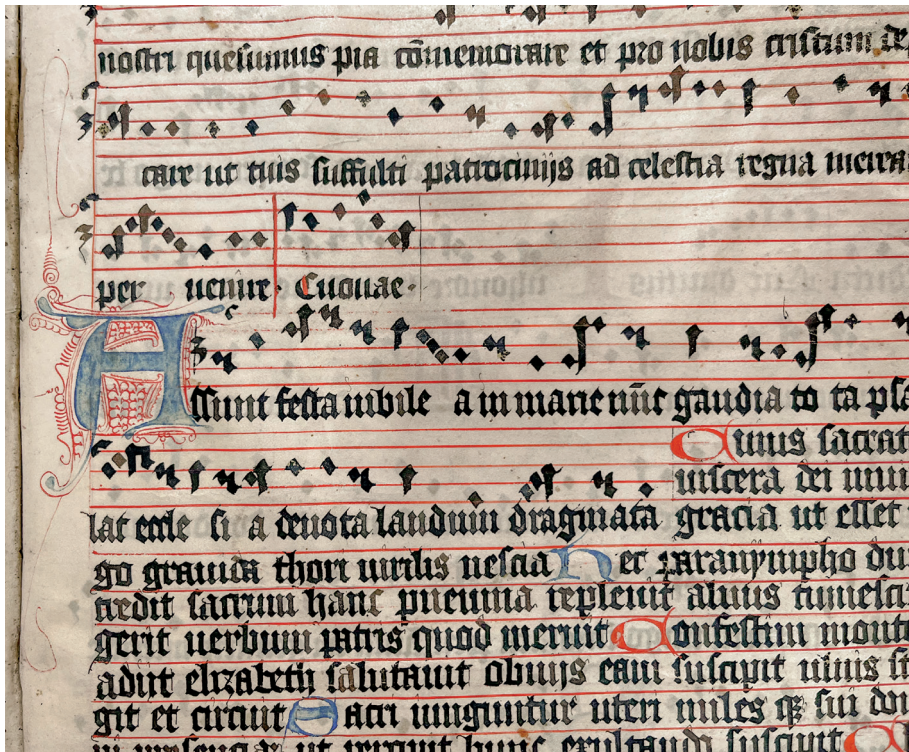 nostri quesumus pia cōmemorare et pro nobis cristum de
care ut tuis suffulti patrocinijs ad celestia regna merea
per uenire · Euouae ·
Assunt festa iubile a in marie nūc gaudia to ta psa
Cuius sacrat
uiscera dei mun
lat eccle si a deuota laudum dragmata gracia ut esset
go grauida thori uirilis nescia Hec paranympho du
credit sacrum hanc pneuma repleuit aluus tumesci
gerit uerbum patris quod meruit Confestim mont
adiit elizabeth salutauit obuijs eam suscipit ulnis st
git et circuit Sacri iunguntur uteri miles qz sui do
in presencia ut percipit hunc exultandi suscipit